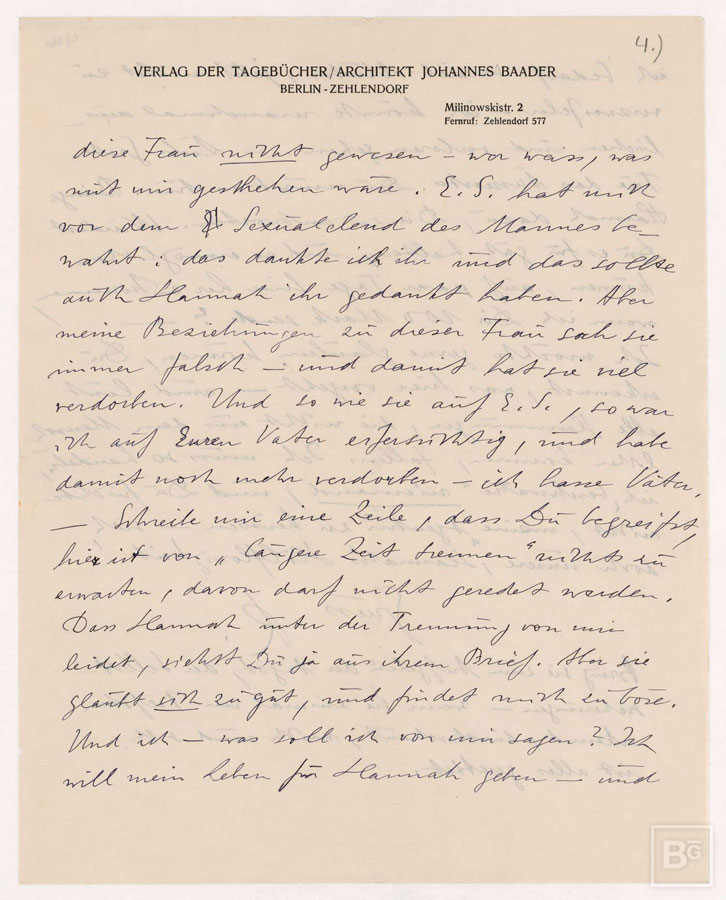 4.)
VERLAG DER TAGEBÜCHER/ARCHITEKT JOHANNES BAADER
BERLIN-ZEHLENDORF
Milinowskistr. 2
Fernruf: Zehlendorf 577
diese Frau nicht gewesen – wer weiss, was
mit mir geschehen wäre. E.S. hat mich
vor dem Sexualelend des Mannes be-
wahrt; das dankte ich ihr und das sollte
auch Hannah ihr gedankt haben. Aber
meine Beziehungen zu dieser Frau sah sie
immer falsch – und damit hat sie viel
verdorben. Und so wie sie auf E.S., so war
ich auf Euren Vater eifersüchtig, und habe
damit noch mehr verdorben – ich hasse Väter.
– Schreibe mir eine Zeile, dass Du begreifst,
hier ist von „längere Zeit trennen" nichts zu
erwarten, davon darf nicht geredet werden.
Dass Hannah unter der Trennung von mir
leidet, siehst Du ja aus ihrem Brief. Aber sie
glaubt sich zu gut, und findet mich zu böse.
Und ich – was soll ich von mir sagen? Ich
will mein Leben für Hannah geben – und
BG